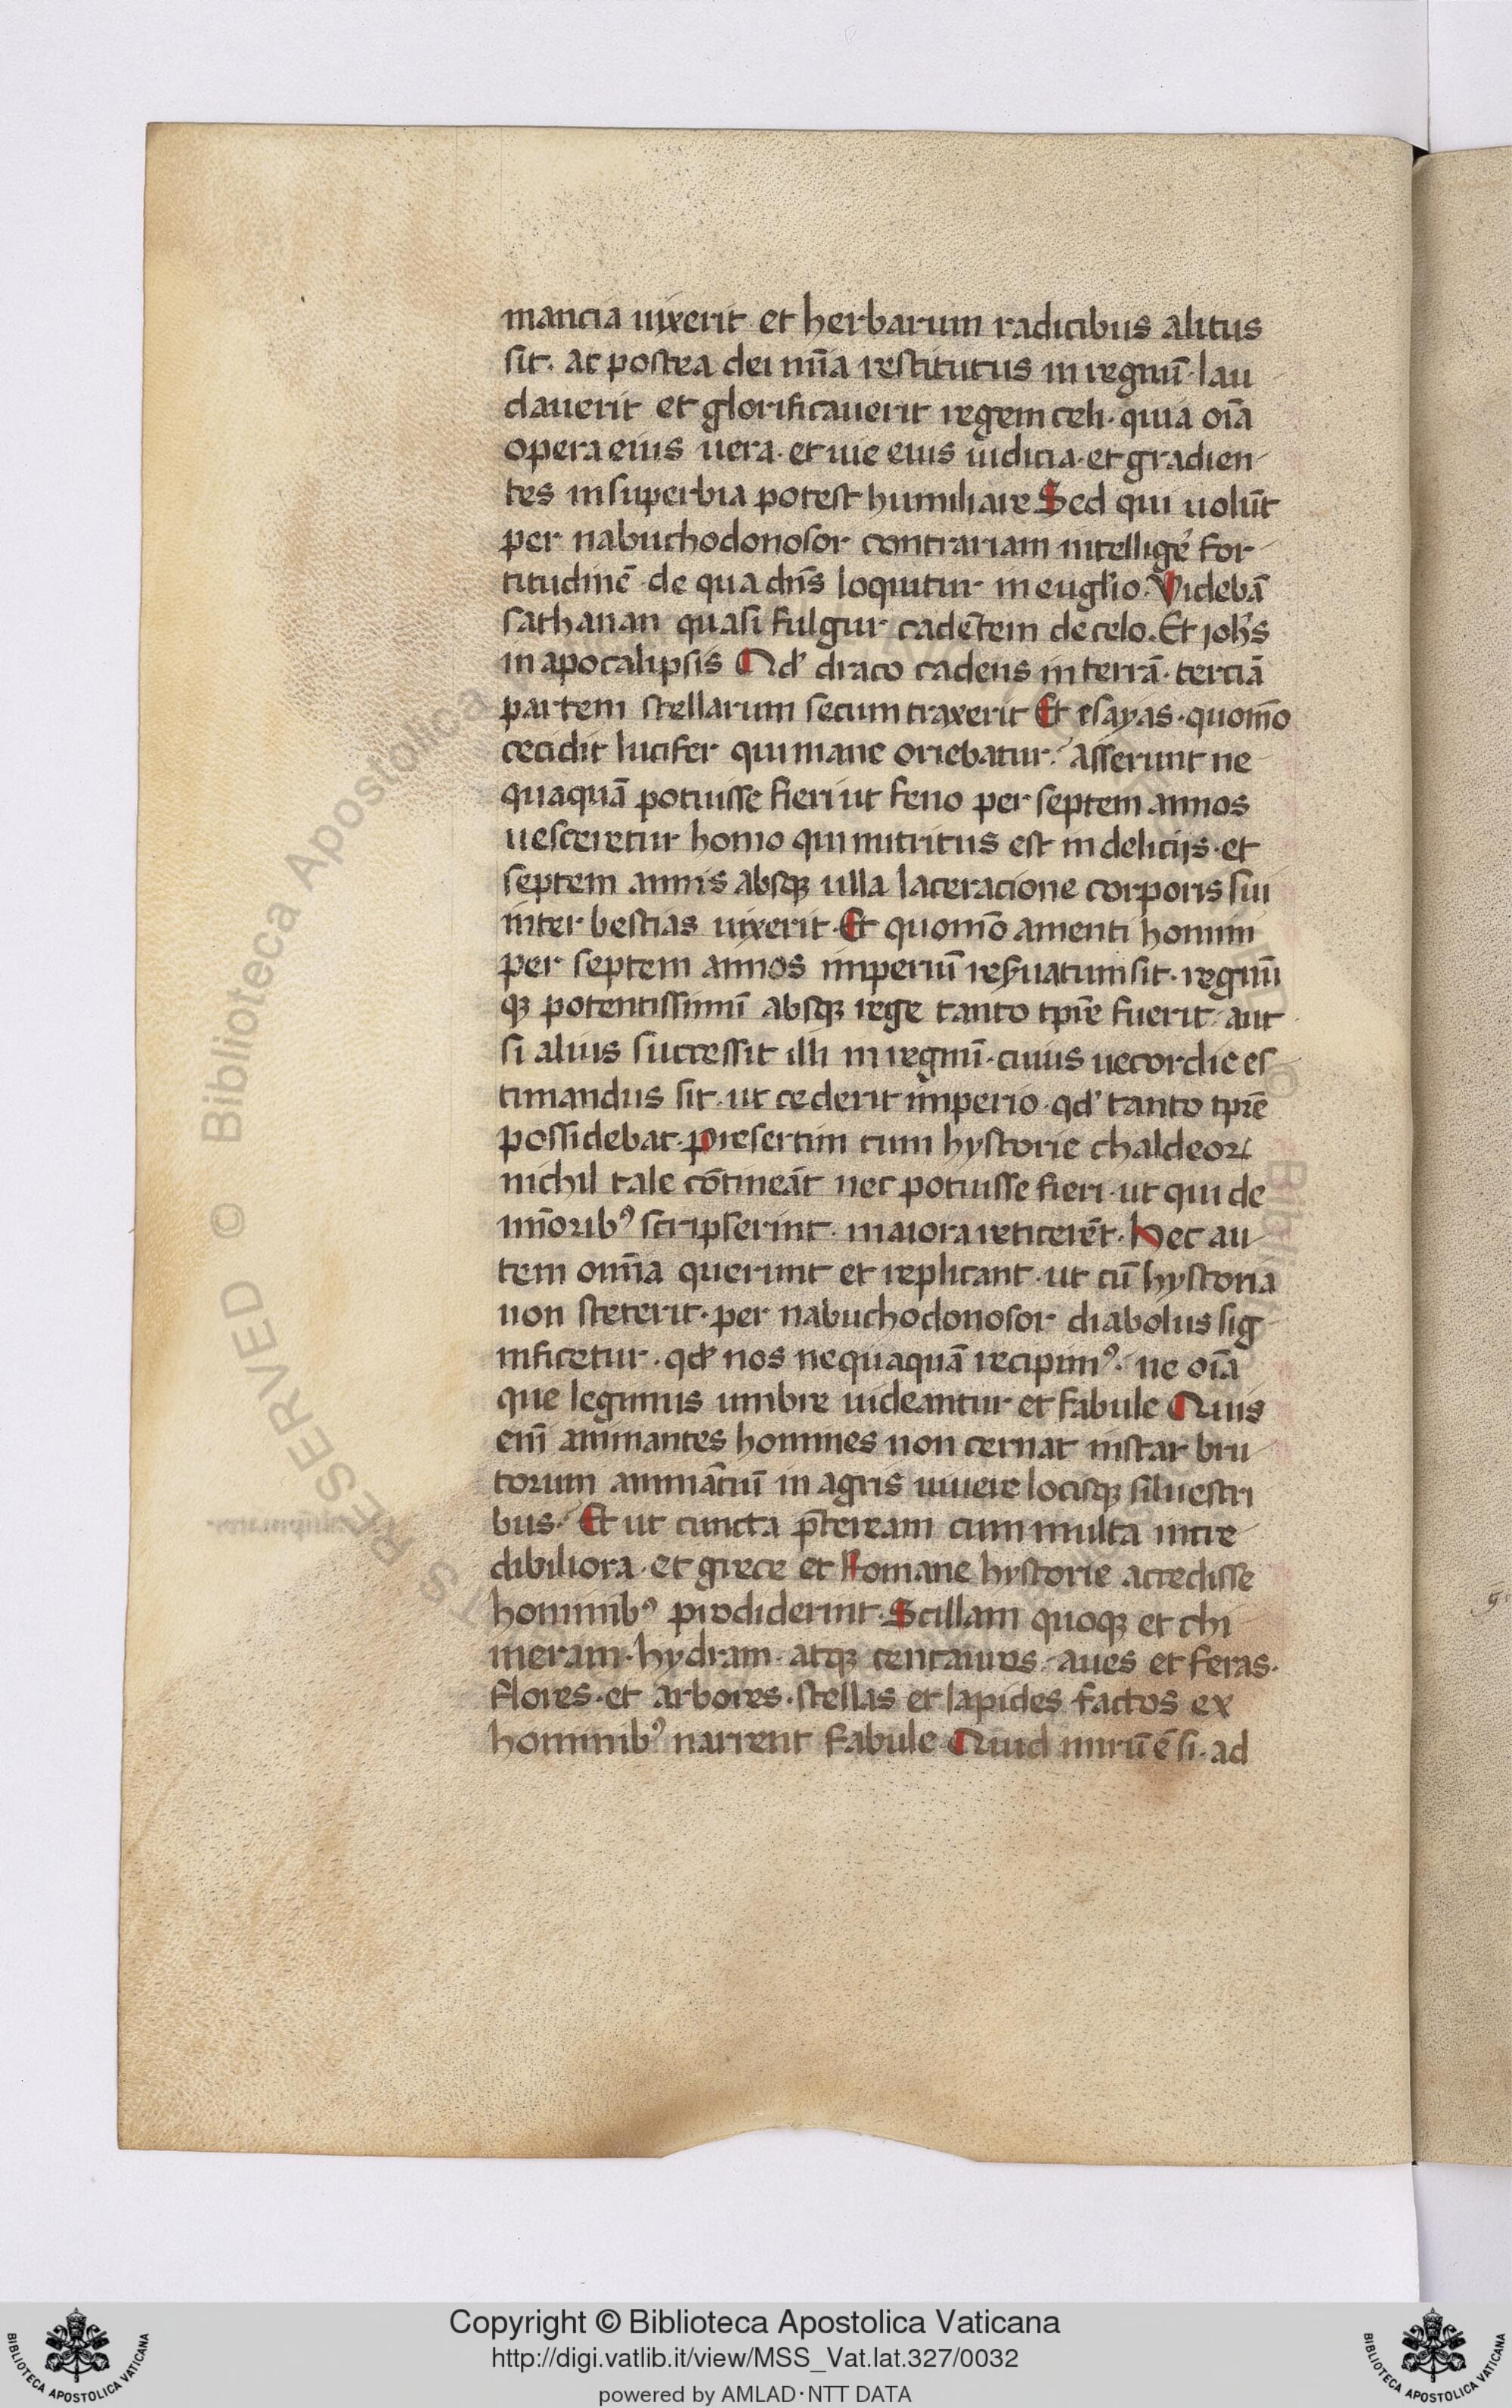 mancia uixerit et herbarum radicibus alitus
sit. at postea dei mīa restitutus in regnū lau
dauerit et glorificauerit regem celi. quia oīa
opera eius uera. et uie eius iudicia et gradien
tes in superbia potest humiliare Sed qui uolūt
per nabuchodonosor contrariam intelligē for
titudinē de qua dn̄s loquitur in euglio. Videbā
sathanan quasi fulgur cadētem de celo. Et joh̄s
in apocalipsis Qd' draco cadens in terrā. terciā
partem stellarum secum traxerit Et esayas. quomō
cecidit lucifer qui mane oriebatur. asserunt ne
quaquā potuisse fieri ut feno per septem annos
uesceretur homo qui nutritus est in deliciis. et
septem annis absqꝫ ulla laceracione corporis sui
inter bestias uixerit. Et quomō amenti homini
per septem annos imperiū res̄uatum sit. regnū
qꝫ potentissimū absqꝫ rege tanto tpr̄e fuerit. aut
si alius successit illi in regnū. cuius uecordie es
timandus sit. ut cederit imperio qd' tanto tpr̄e
possidebat. presertim cum hystorie chaldeoꝝ
nichil tale cōtineāt nec potuisse fieri. ut qui de
mīoribꝰ scripserint. maiora reticerēt. Hec au
tem omīa querunt et replicant. ut cū hystoria
non steterit. per nabuchodonosor diabolus sig
nificetur. qd' nos nequaquā recipimꝰ. ne oīa
que legimus umbre uideantur et fabule Quis
enī animantes homines non cernat instar bru
torum animātiū in agris uiuere locisqꝫ siluestri
bus. Et ut cuncta p̄teream cum multa incre
dibiliora. et grece et Romane hystorie accedisse
hominibꝰ prodiderint. Scillam quoqꝫ et chi
meram. hydram. atqꝫ centauros. aues et feras.
flores. et arbores. stellas et lapides factos ex
hominibꝰ narrent fabule Quid mirū ē si. ad
Copyright © Biblioteca Apostolica Vaticana
http://digi.vatlib.it/view/MSS_Vat.lat.327/0032
powered by AMLAD·NTT DATA